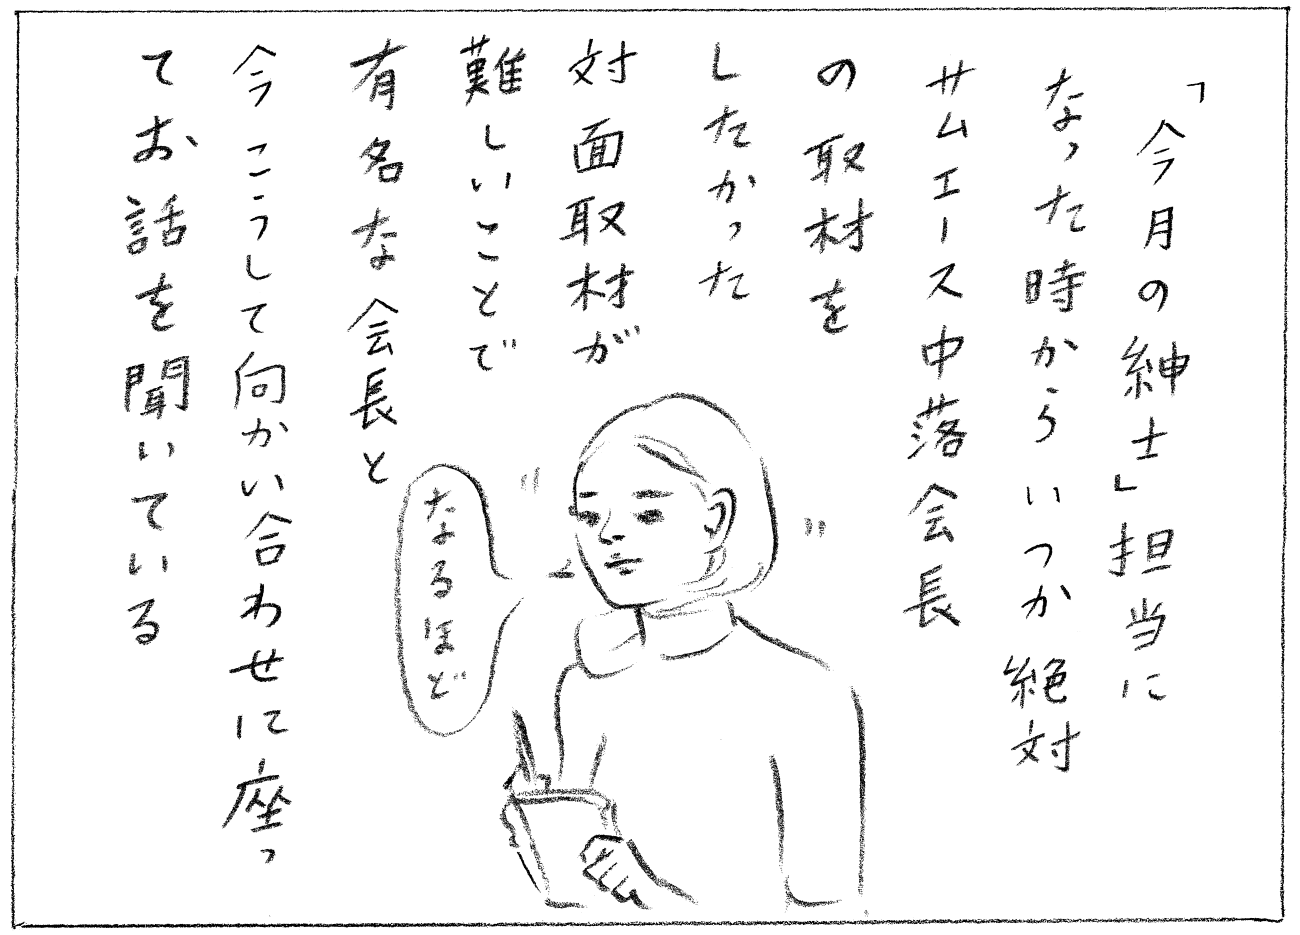 「今月の紳士」担当に
なった時からいつか絶対
サムエース中落会長
の取材を
したかった
対面取材が
難しいことで
有名な会長と
今こうして向かい合わせに座っ
てお話を聞いている
なるほど